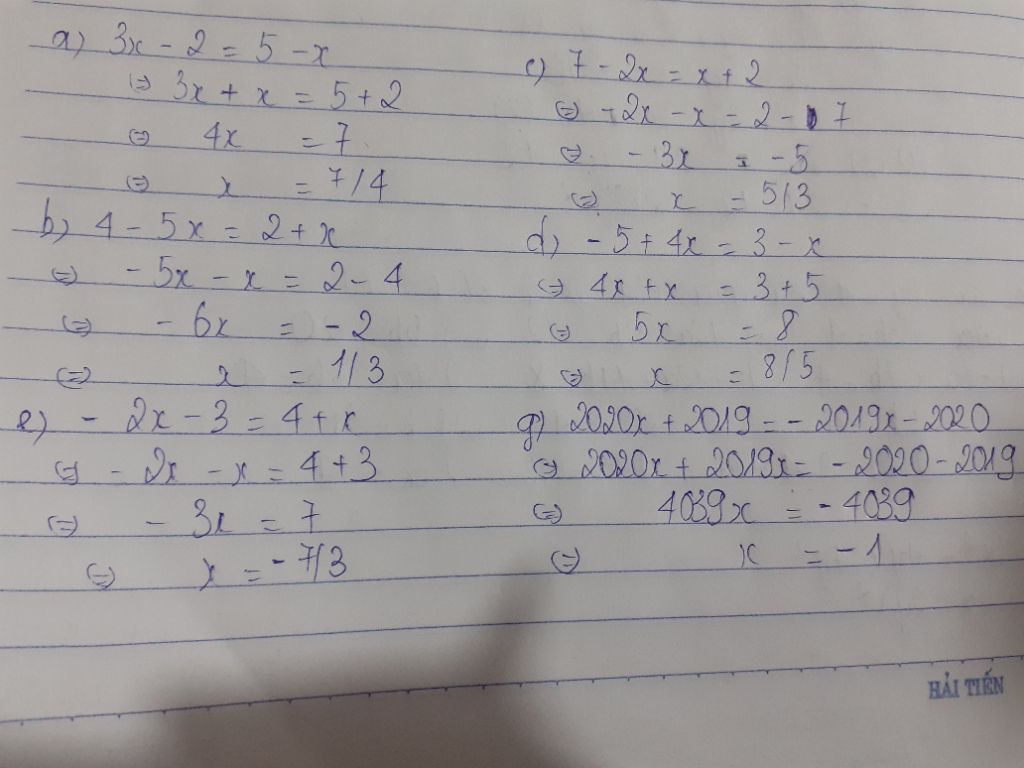 a) 3x - 2 = 5 - x
⇔ 3x + x = 5 + 2
⇔ 4x = 7
⇔ x = 7/4
b) 4 - 5x = 2 + x
⇔ - 5x - x = 2 - 4
⇔ - 6x = - 2
⇔ x = 1/3
e) - 2x - 3 = 4 + x
⇔ - 2x - x = 4 + 3
⇔ - 3x = 7
⇔ x = - 7/3
c) 7 - 2x = x + 2
⇔ - 2x - x = 2 - 7
⇔ - 3x = - 5
⇔ x = 5/3
d) - 5 + 4x = 3 - x
⇔ 4x + x = 3 + 5
⇔ 5x = 8
⇔ x = 8/5
g) 2020x + 2019 = - 2019x - 2020
⇔ 2020x + 2019x = - 2020 - 2019
⇔ 4039x = - 4039
⇔ x = - 1
HẢI TIẾN